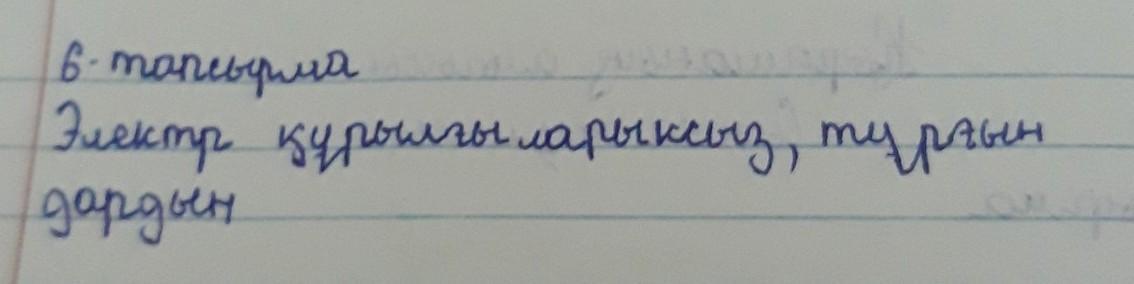 6-тапсырма
Электр құрылғыларыксыз, тұрғын
дардын